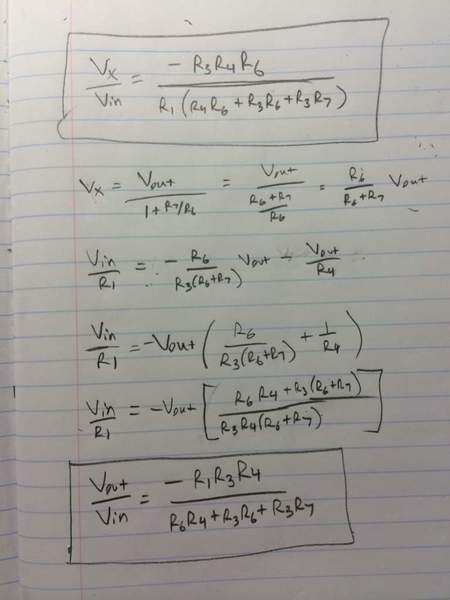 Vx/Vin = - R3R4R6 / R1 (R4R6 + R3R6 + R3R7)
Vx = Vout / 1 + R7/R6 = Vout / (R6+R7 / R6) = R6 / R6+R7 Vout
Vin/R1 = - R6 / R3(R6+R7) Vout - Vout/R4
Vin/R1 = -Vout ( R6 / R3(R6+R7) + 1/R4 )
Vin/R1 = -Vout [ R6R4 + R3(R6+R7) / R3R4(R6+R7) ]
Vout/Vin = - R1R3R4 / R6R4 + R3R6 + R3R7